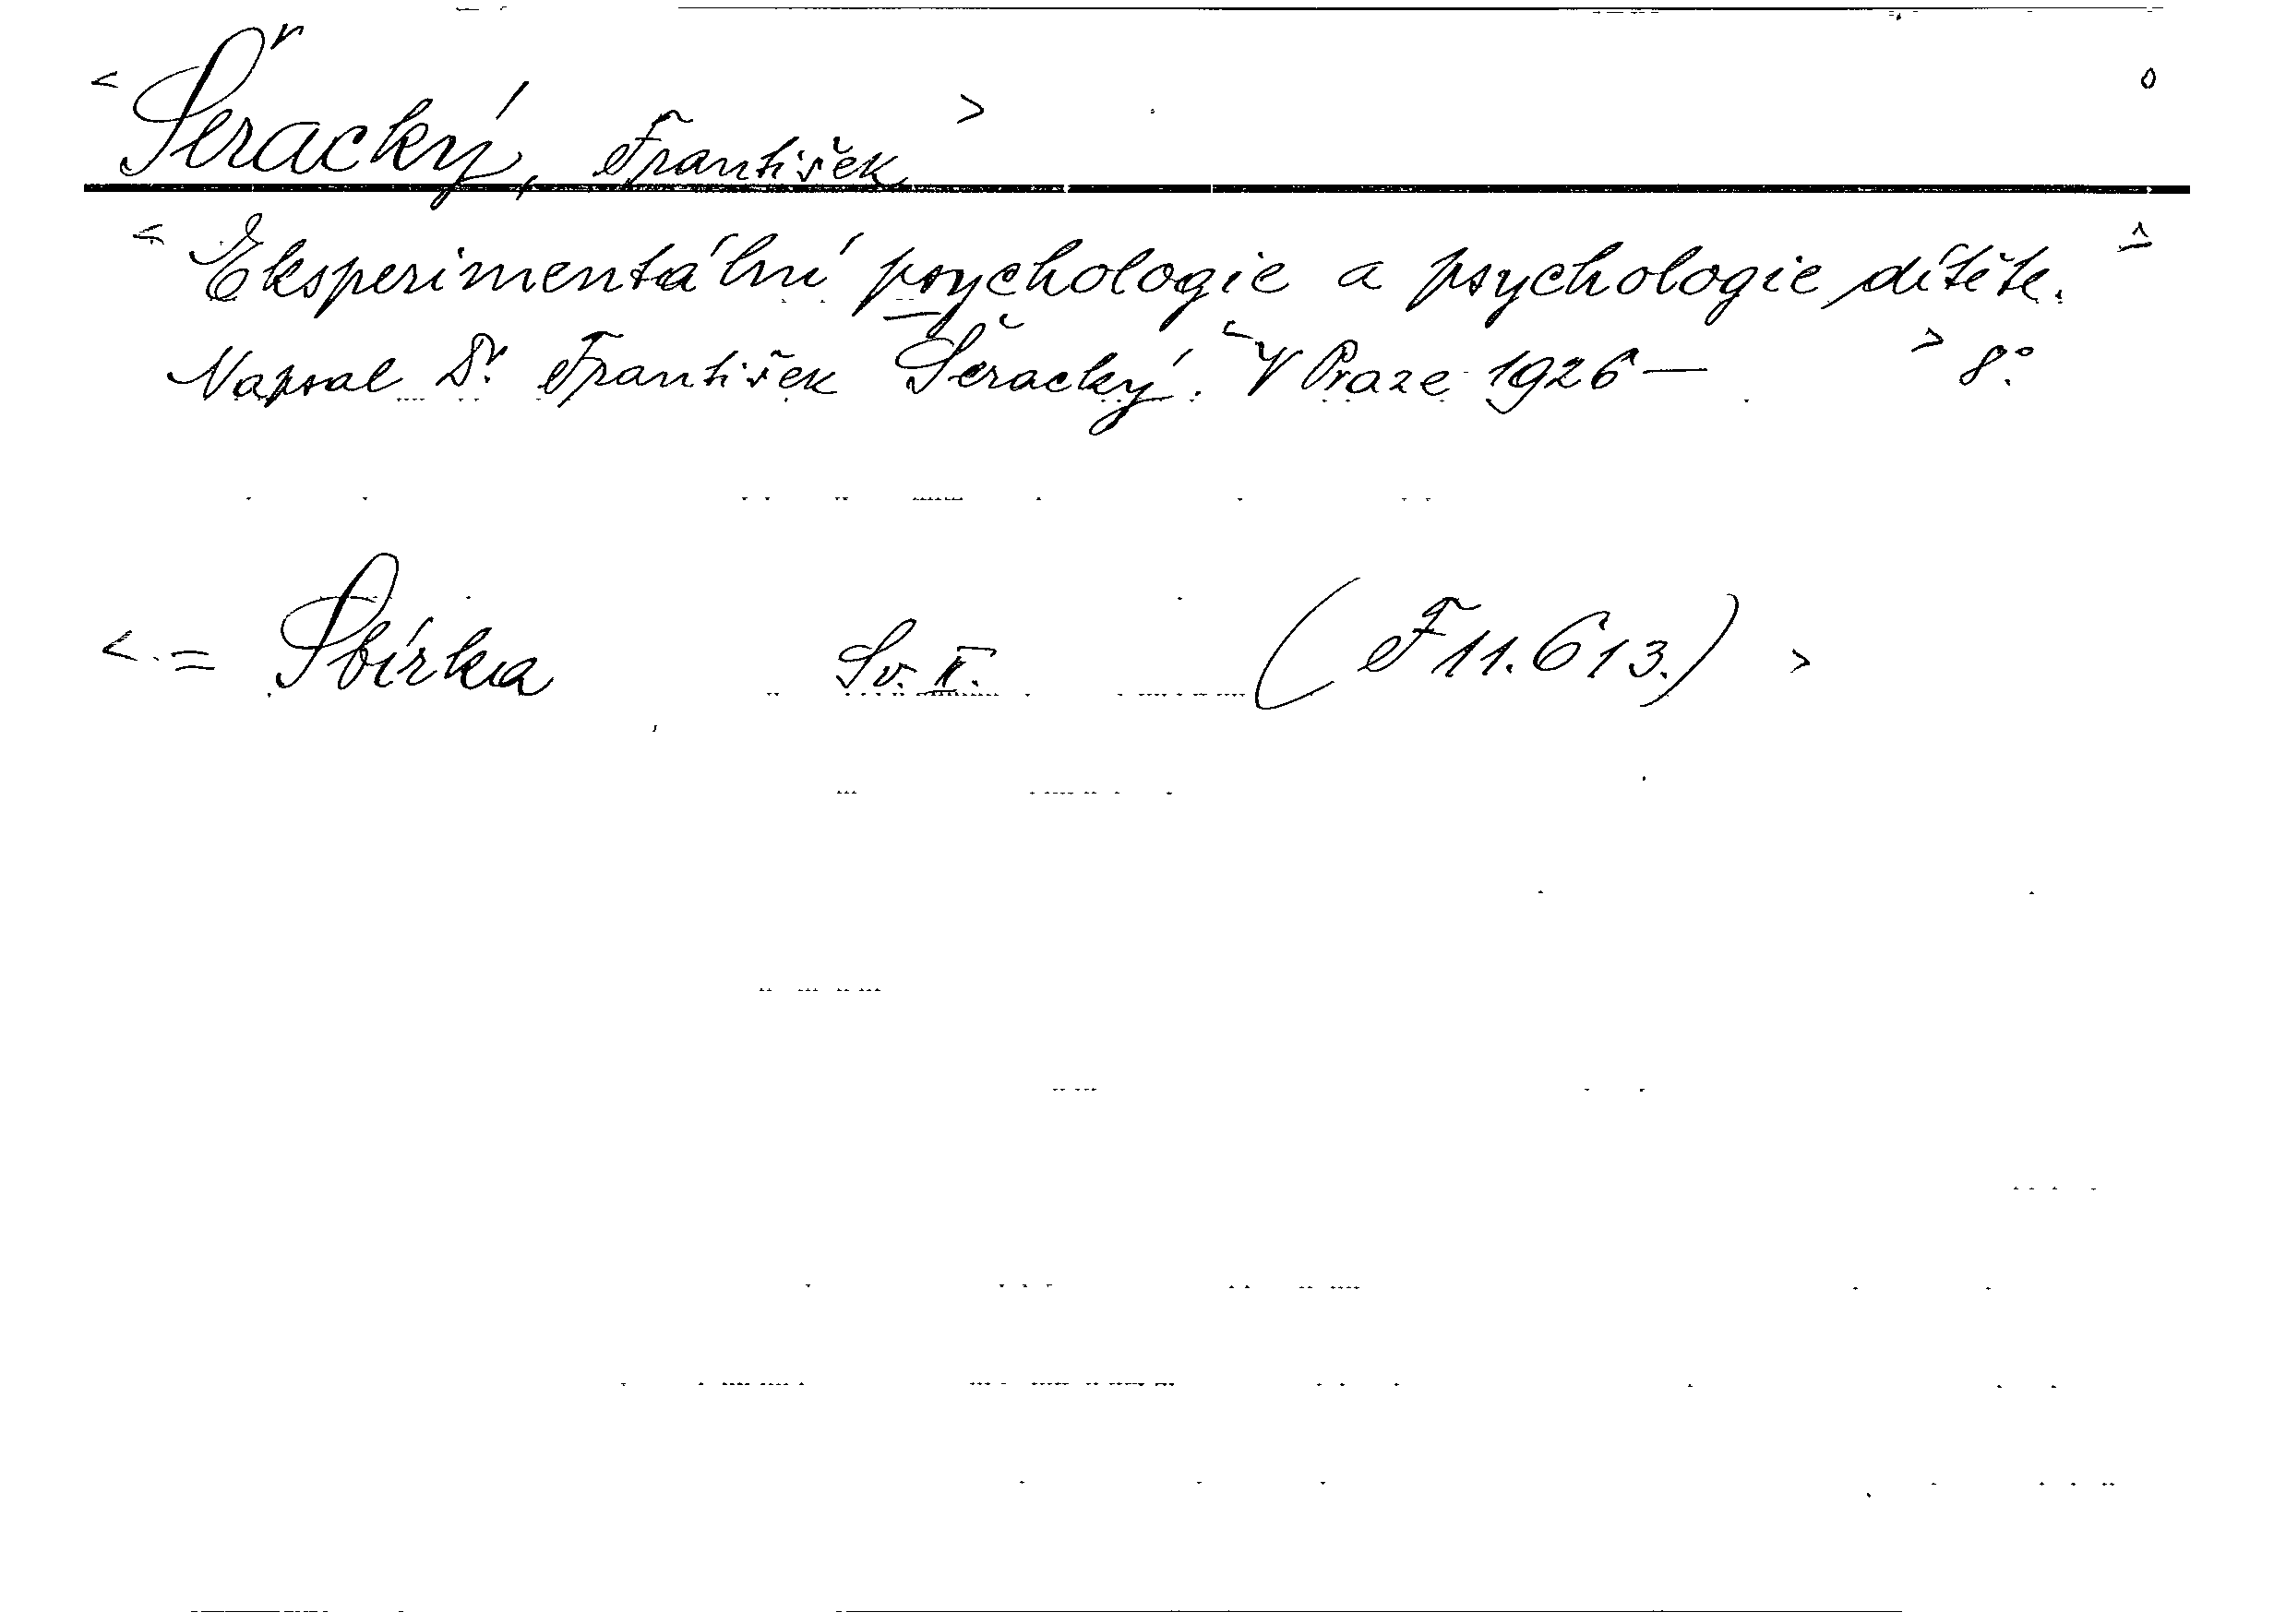 < Šeracký, František > 0
< Eksperimentální psychologie a psychologie dítěte. ^
Napsal Dr. František Šeracký. < V Praze 1926 — > 8°.
< . = Sbírka Sv. II. (F 11.613.) >